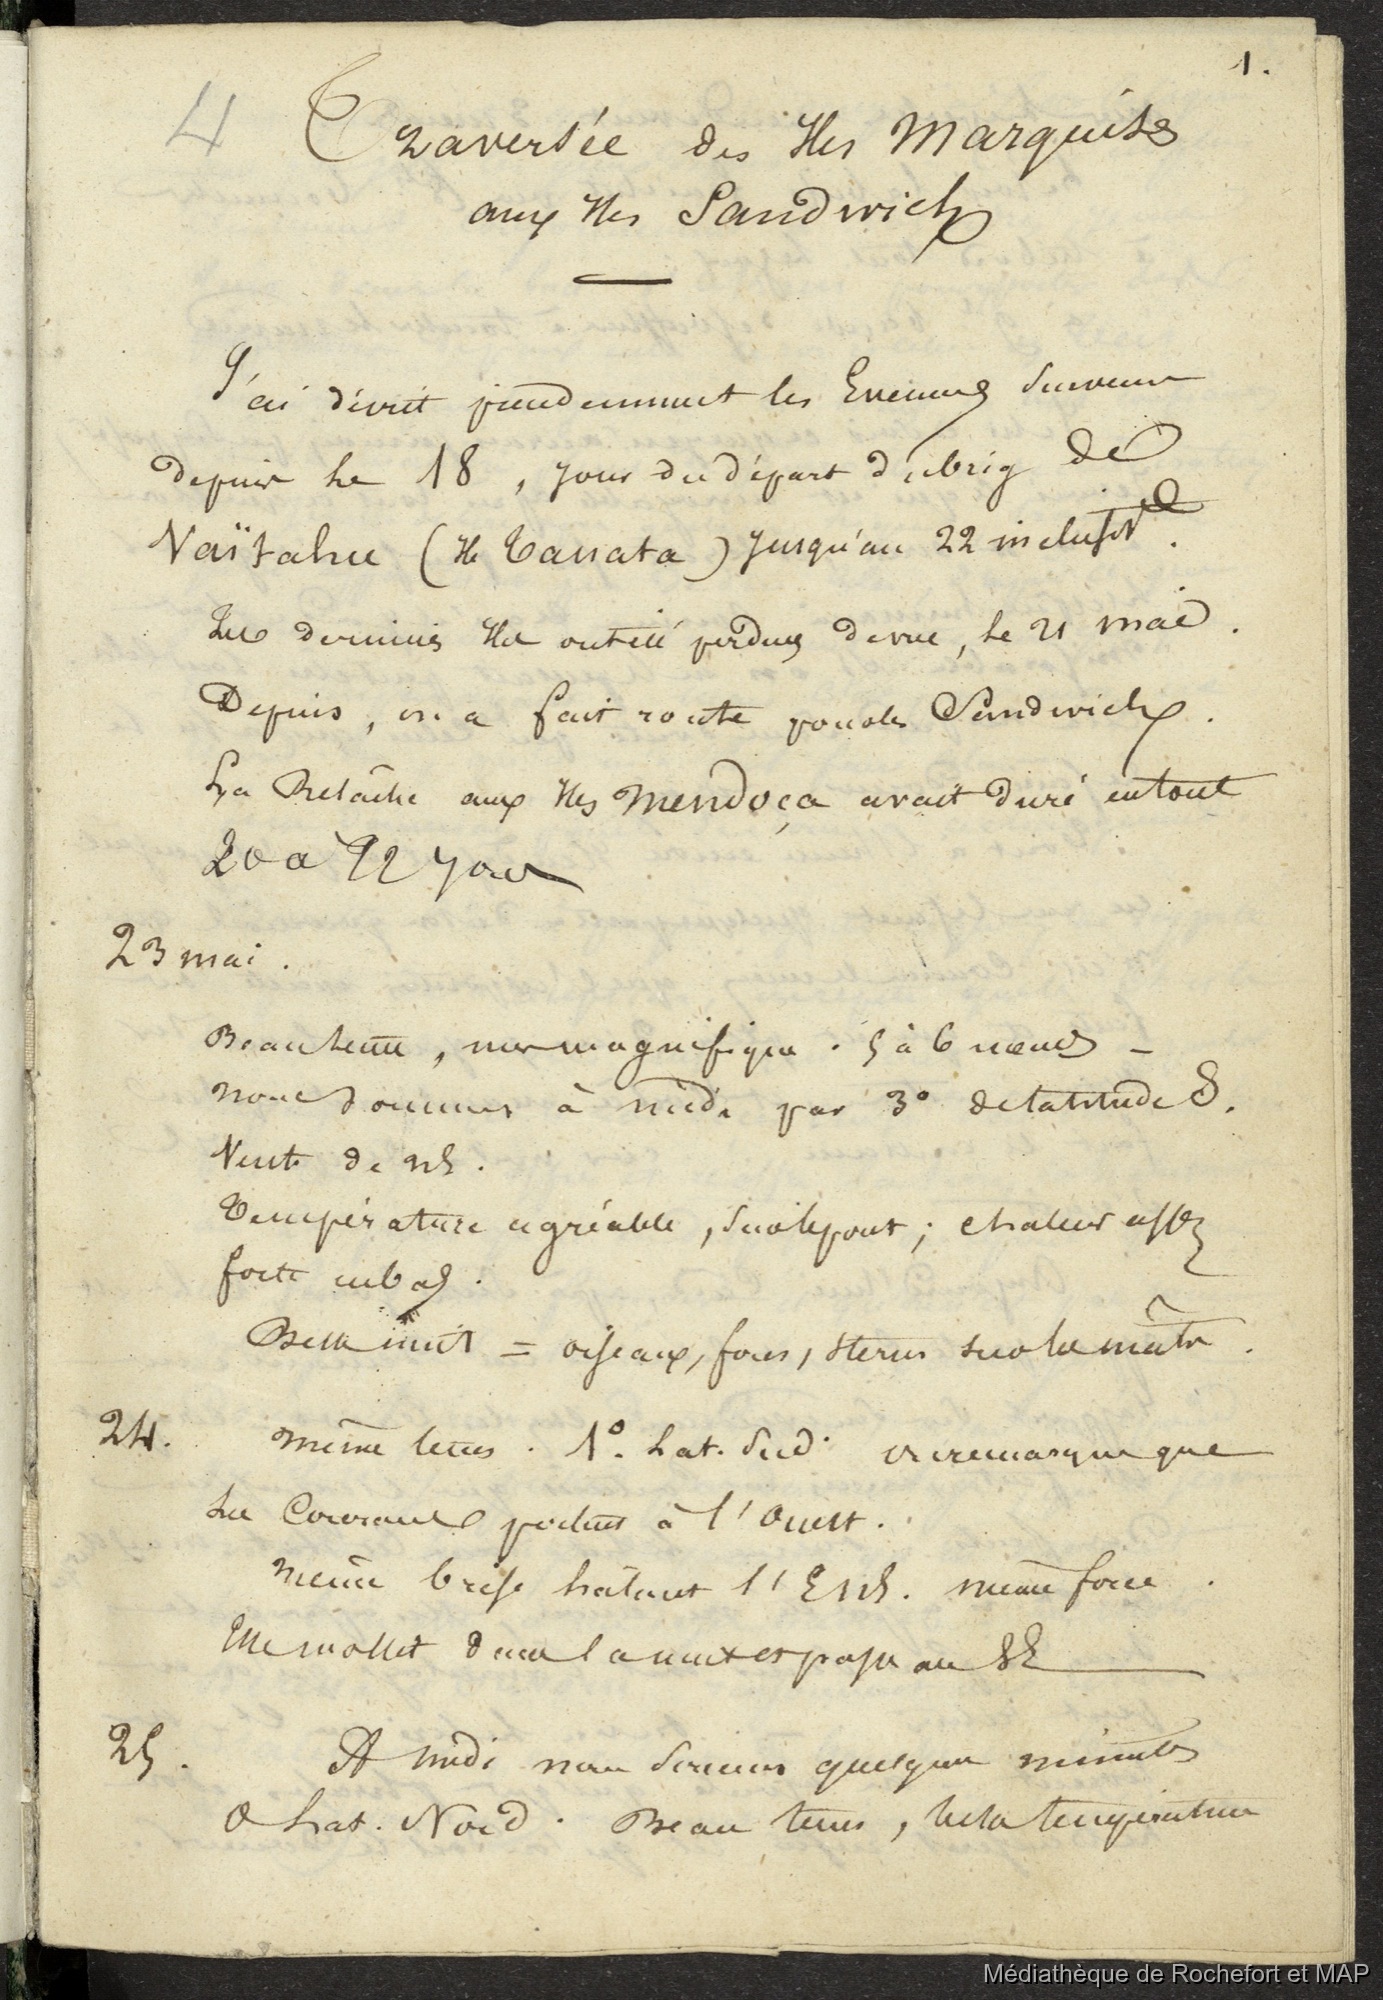 1.
4
Traversée des Iles Marquises
aux Iles Sandwich
J'ai décrit précédemment les Evenemens survenus
depuis le 18, jour du départ du brig de
Vaïtahu (Ile Taouata) jusqu'au 22 inclusivt.
Les dernieres Iles ont été perdues de vue, le 21 mai.
Depuis, on a fait route pour les Sandwich.
La Relâche aux Iles Mendoça avait duré en tout
20 a 22 jours
23 mai.
Beau tems, mer magnifique. 5 à 6 nœuds -
nous sommes à midi par 3° de latitude S.
Vents de NE.
Température agréable, sur le pont; chaleur assez
forte en bas.
Belle nuit = oiseaux, fous, sternes sur la mâture.
24.
même tems. 1° Lat. Sud. on remarque que
les Courans portent à l'ouest.
même brise hâlant l'ENE. même force.
Elle mollit dans la nuit et passe au SE
25.
A midi nous sommes quelques minutes
0 Lat. Nord. Beau tems, belle température
Médiathèque de Rochefort et MAP